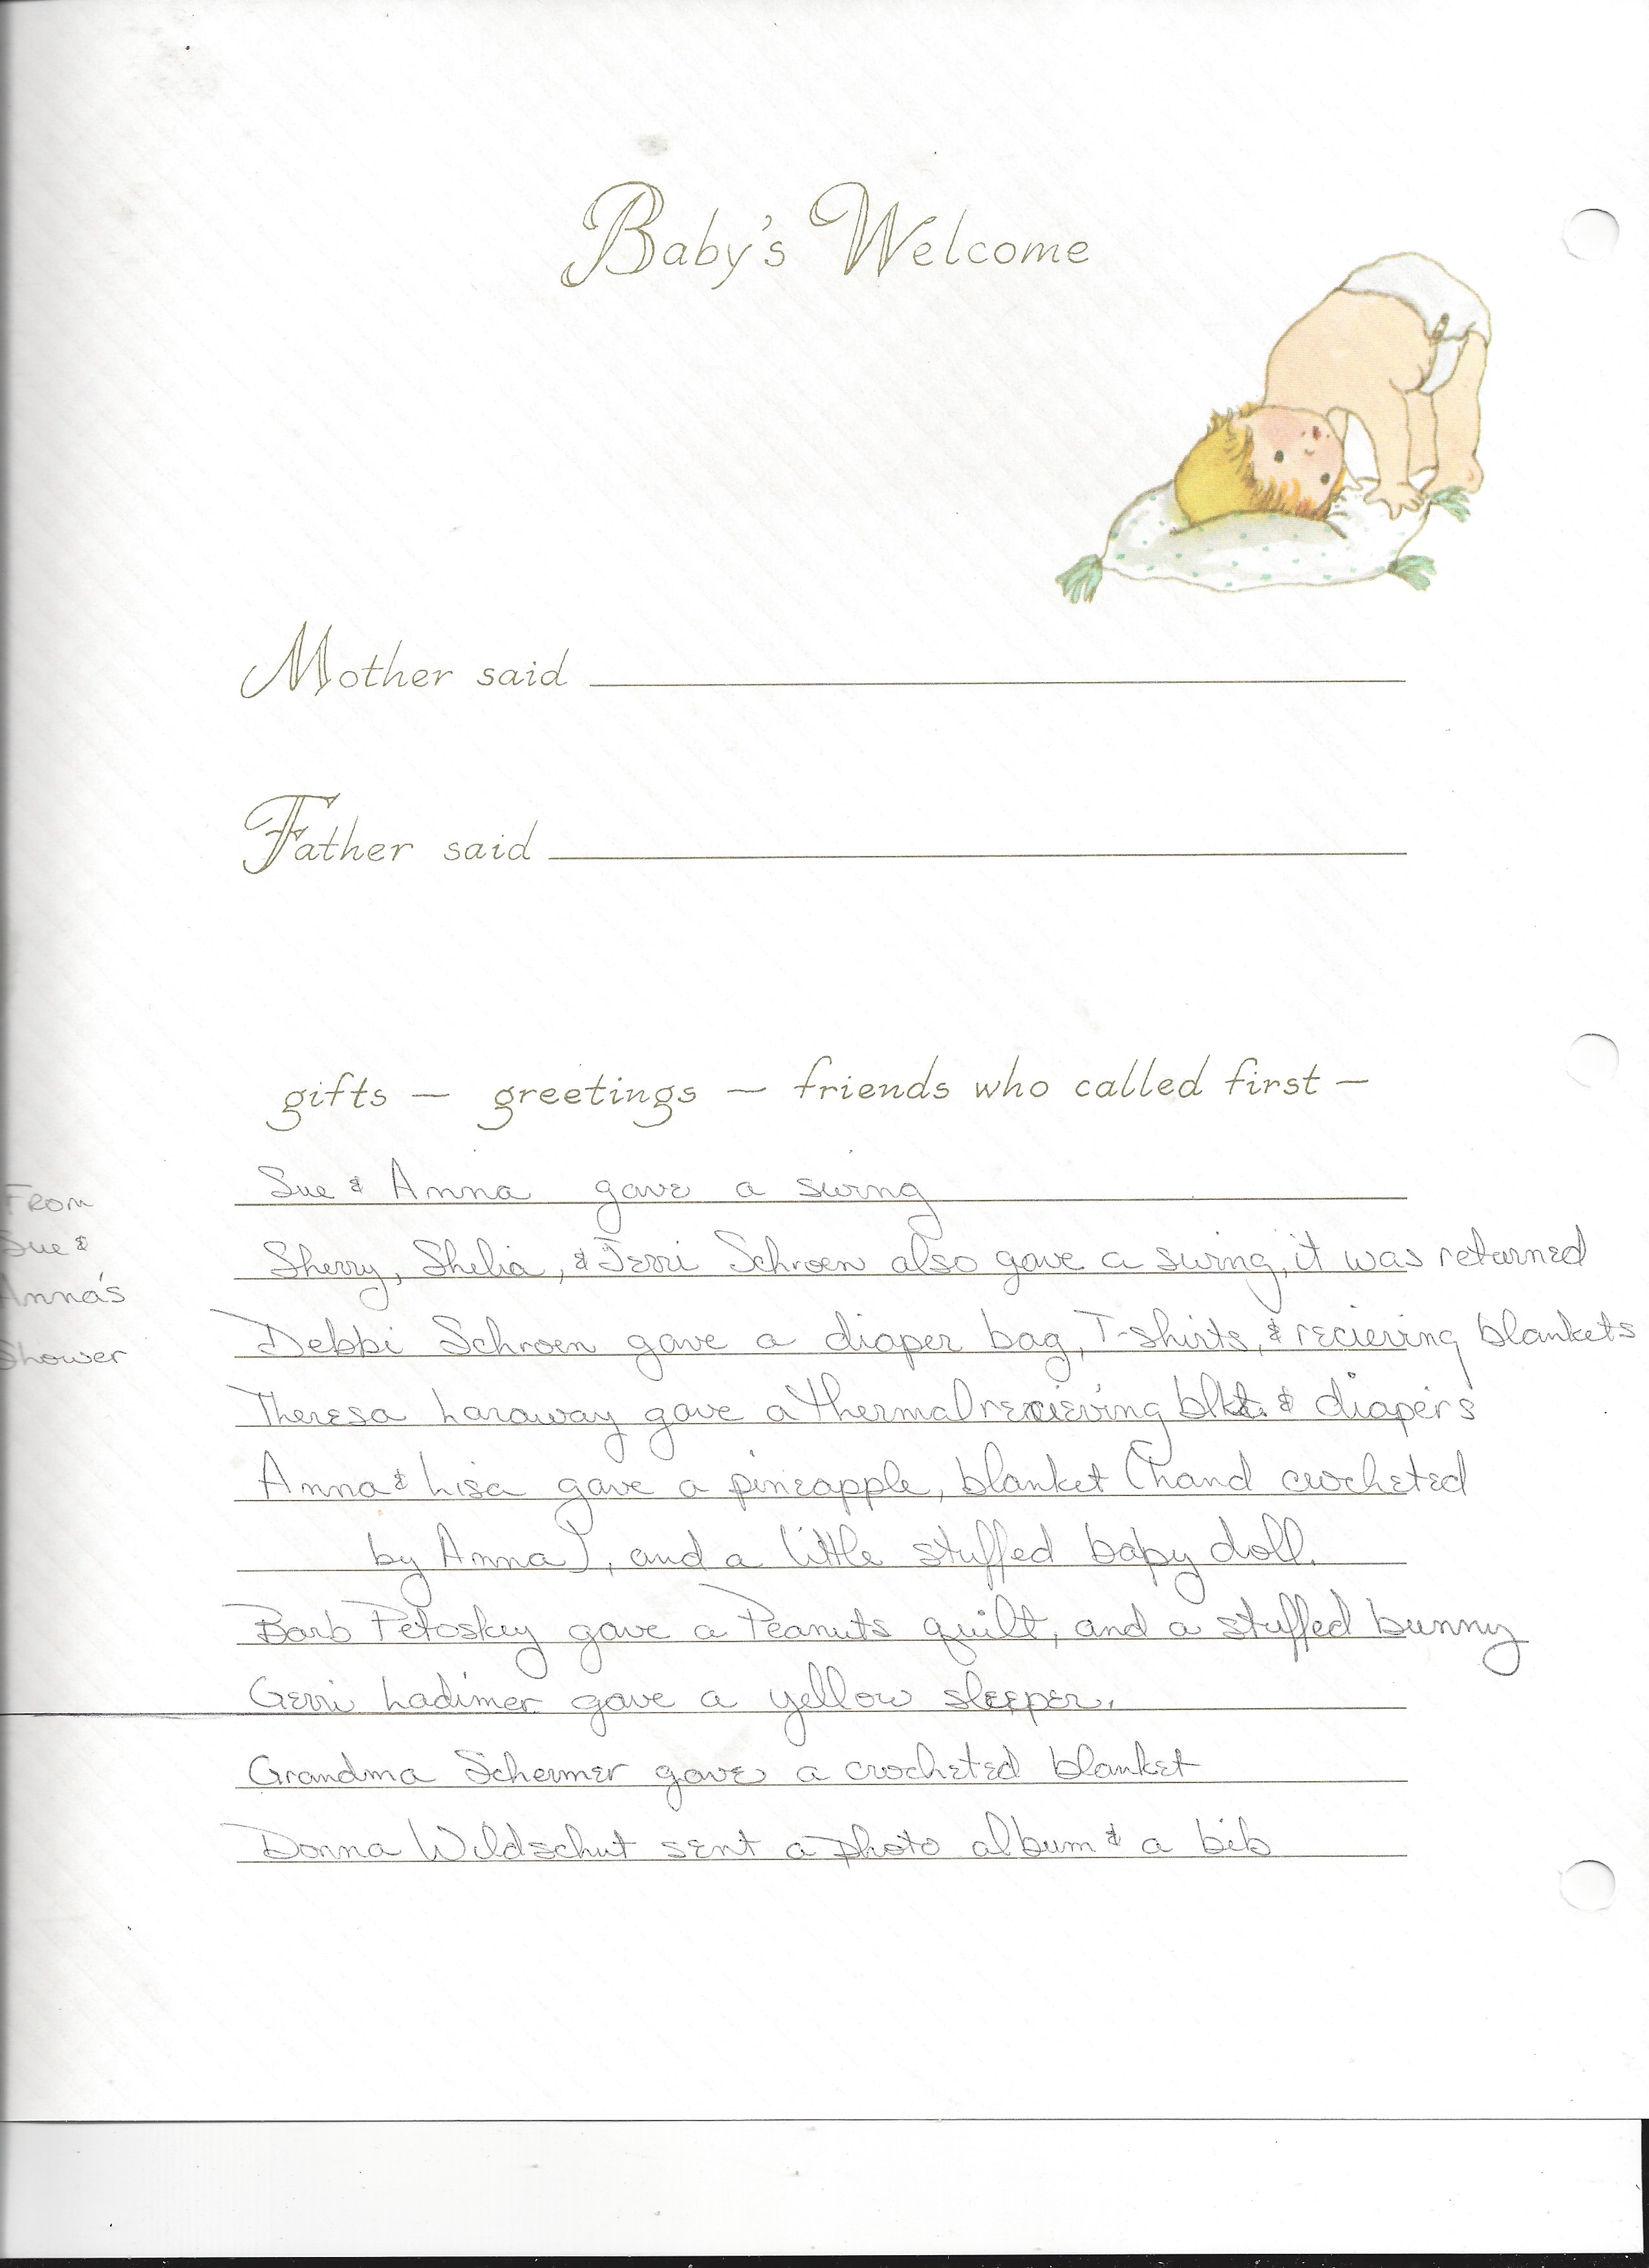 Baby's Welcome
Mother said
Father said
gifts — greetings — friends who called first —
From
Sue &
Anna's
Shower
Sue & Anna gave a swing
Sherry, Shelia, & Terri Schroen also gave a swing, it was returned
Debbi Schroen gave a diaper bag, T-shirts, & recieving blankets
Theresa Laraway gave a thermal recieving blkt. & diapers
Anna & Lisa gave a pineapple, blanket (hand crocheted
by Anna), and a little stuffed baby doll.
Barb Petoskey gave a Peanuts quilt, and a stuffed bunny
Gerri Ladimer gave a yellow sleeper.
Grandma Schermer gave a crocheted blanket
Donna Wildschut sent a photo album & a bib